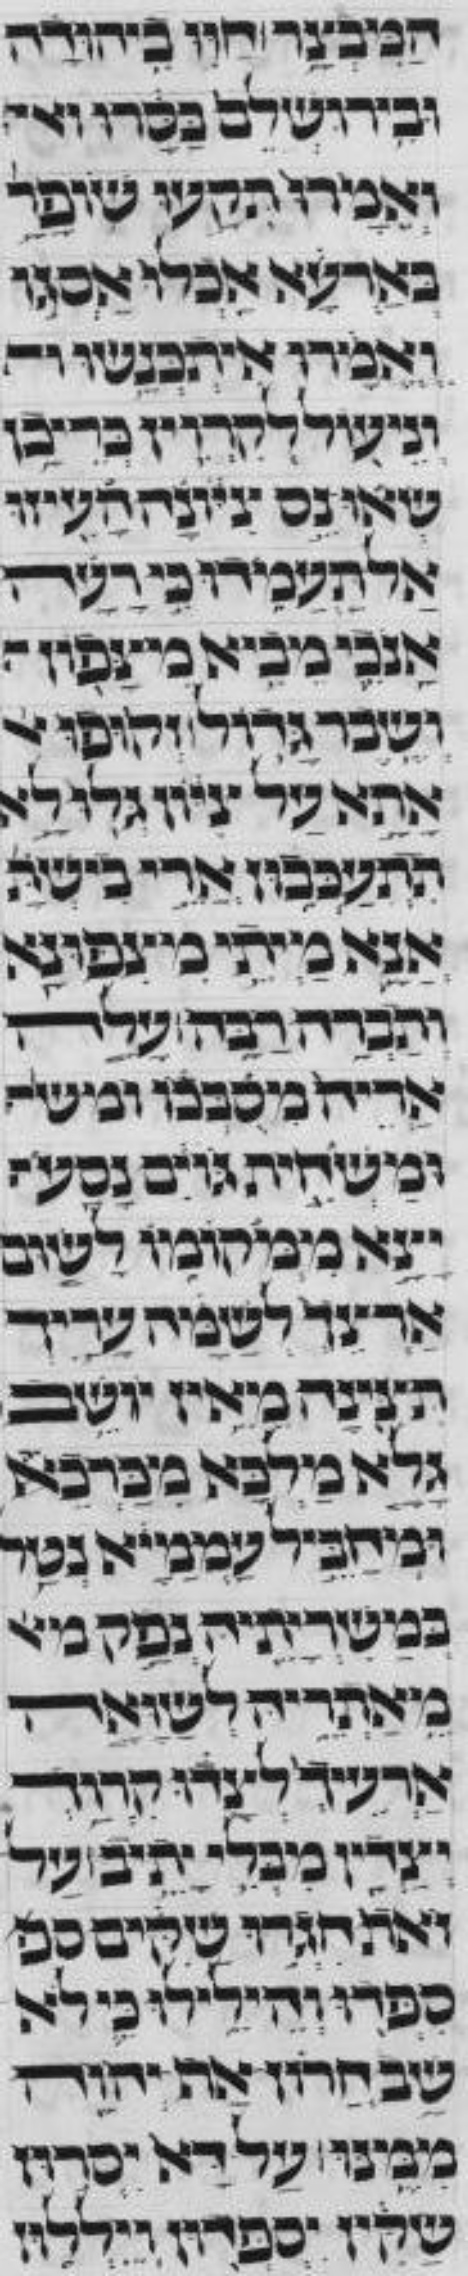 המבצר חוו ביהודה
ובירושלם בסרו ואי
ואמרו תקעו שופר
בארעא אכלו אסגו
ואמרו איתכנשו ות
וניעול לקרוין כריכן
שאו נס ציונה העיזו
אל תעמדו כי רעה
אנכי מביא מיצפון
ושבר גדול זקופו א
אתא על ציון גלו לא
תתעכבון ארי בישת
אנא מייתי מיצפונא
ותברה רבה עלה
אריה מסבכו ומש
ומשחית גוים נסע
יצא ממקומו לשום
ארצך לשמה עריך
תיצינה מאין יושב
גלא מלכא מכרכא
ומחביל עממיא נטל
במשריתיה נפק מא
מאתריה לשואה
ארעיך לצדו קרוך
יצדין מבלי יתיב על
זאת חגרו שקים ספ
ספדו והילילו כי לא
שב חרון אף יהוה
ממנו על דא יסרון
שקין יספדון ויללון